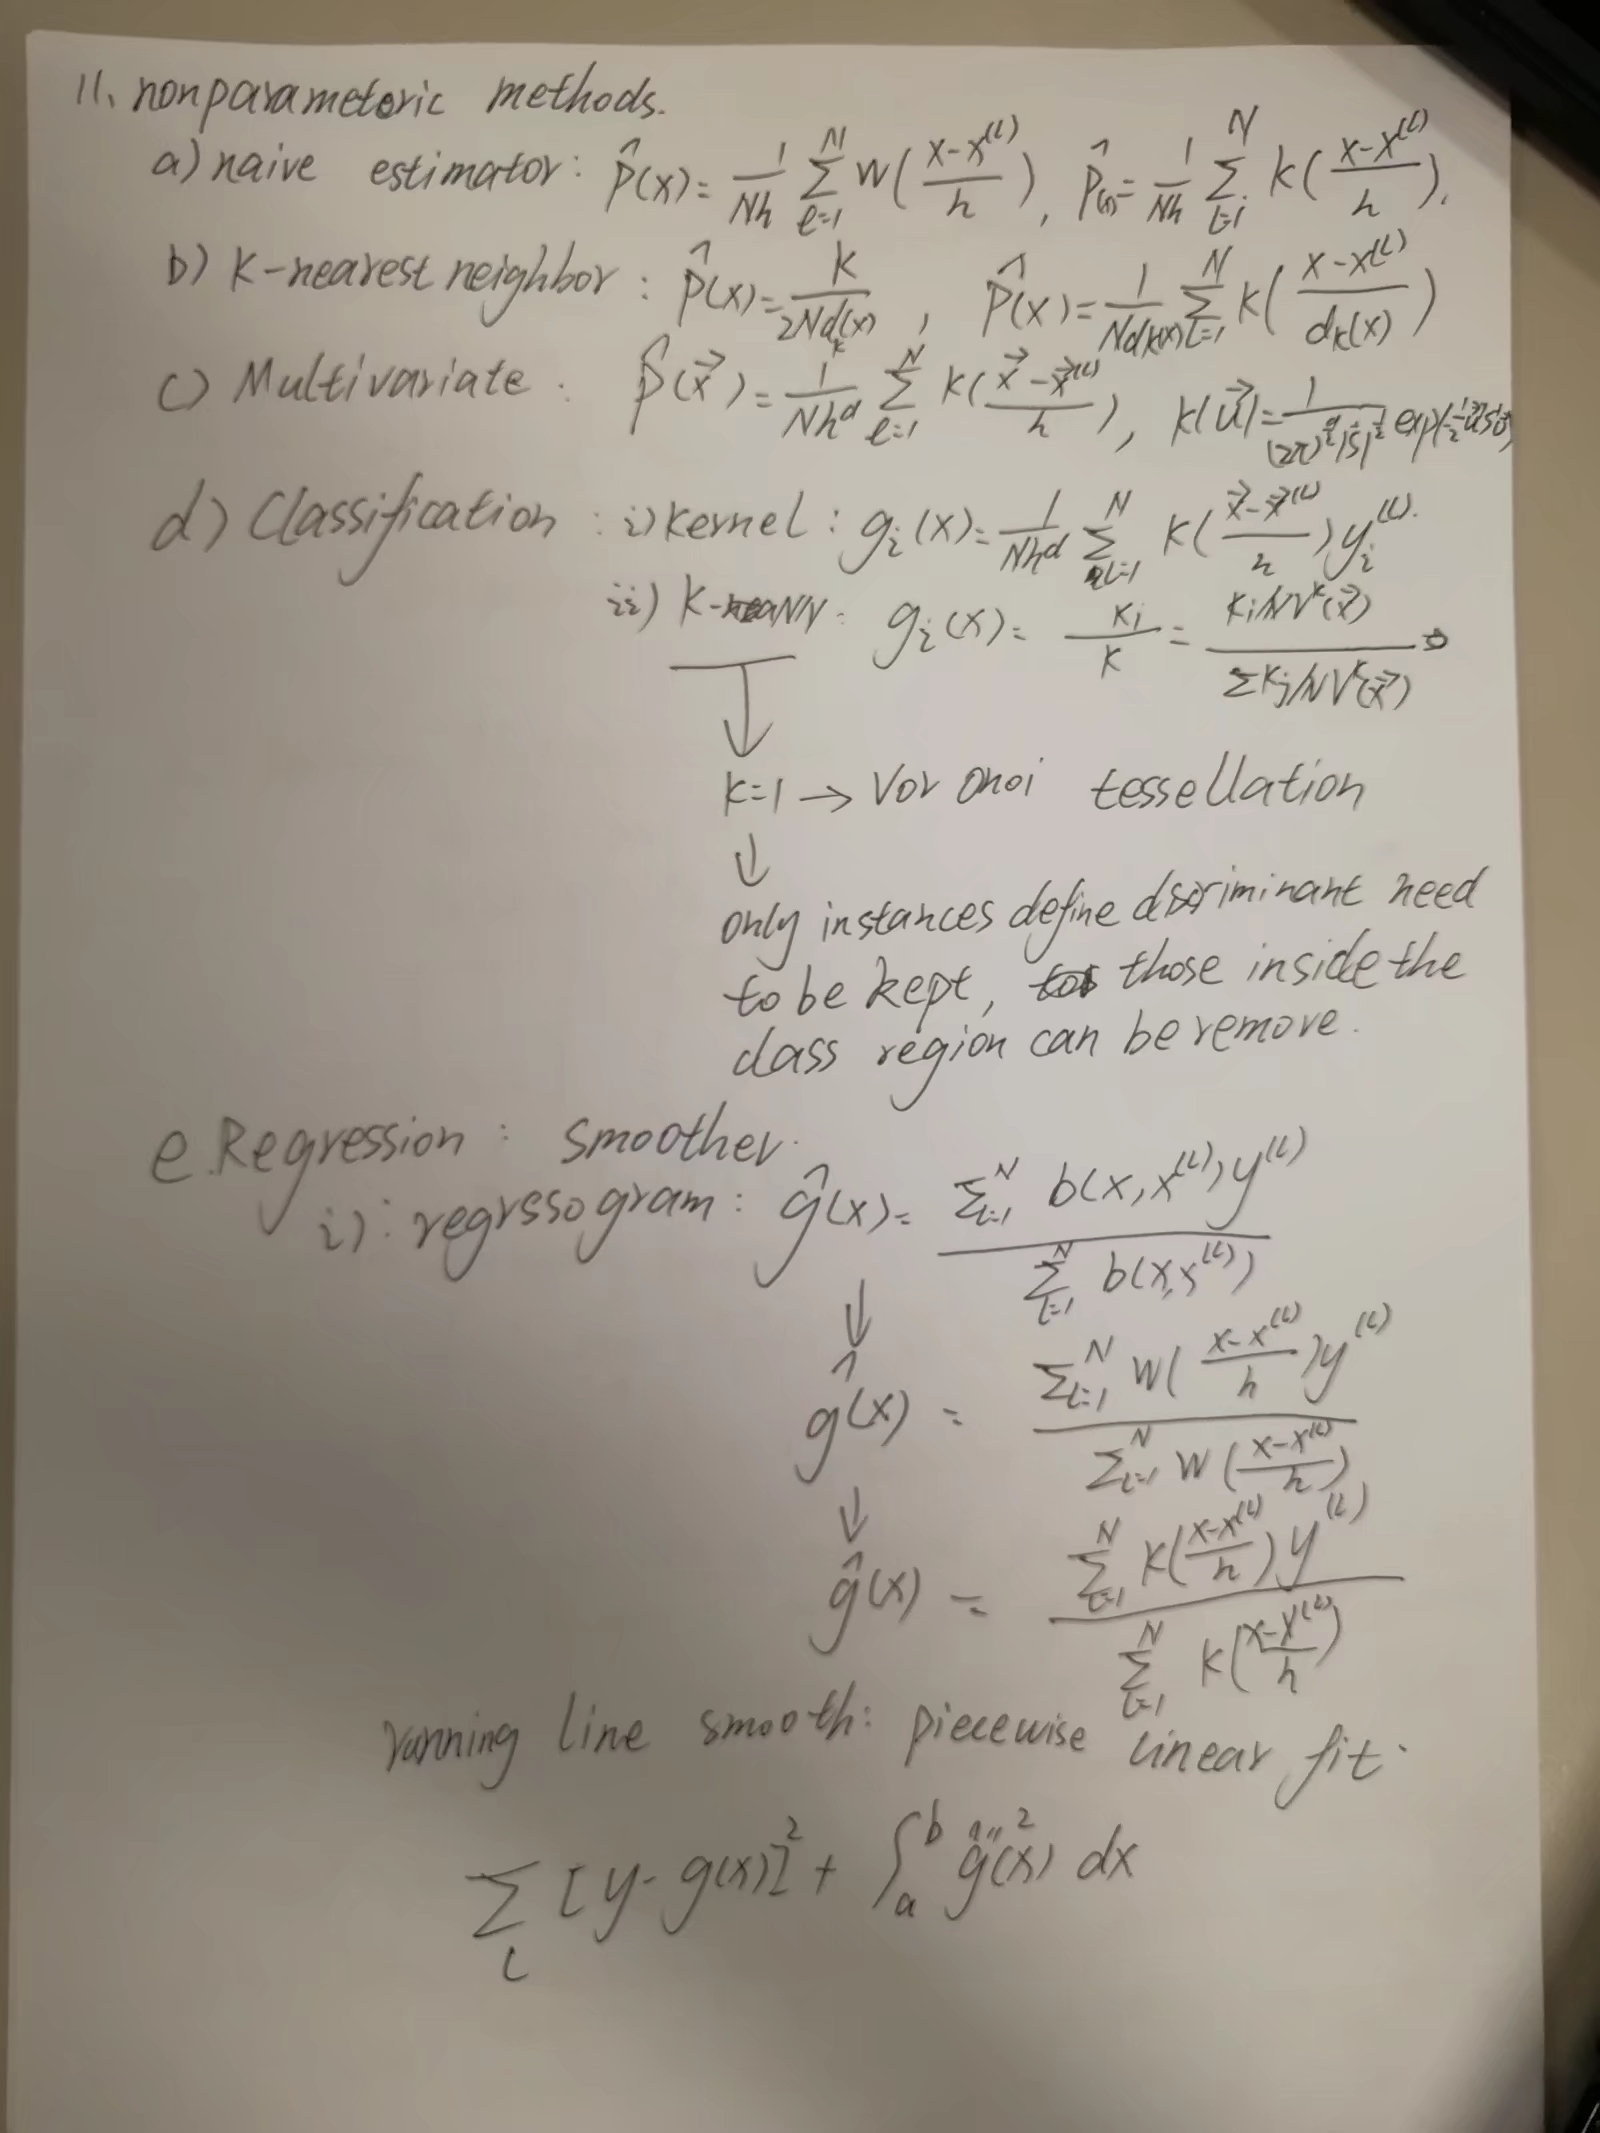 11. nonparameteric methods.
a) naive estimator: p̂(x) = 1/(Nh) Σ_{ℓ=1}^{N} w((x-x^{(l)})/h), p̂(x) = 1/(Nh) Σ_{l=i}^{N} k((x-x^{(l)})/h).
b) K-nearest neighbor: p̂(x) = k/(2Nd_k(x)), p̂(x) = 1/(Nd_k(x)) Σ_{l=1}^{N} k((x-x^{(l)})/d_k(x))
c) Multivariate: p̂(x⃗) = 1/(Nh^d) Σ_{ℓ=1}^{N} k((x⃗-x⃗^{(l)})/h), k(u⃗) = 1/((2π)^{d/2}|S|^{1/2}) exp(-1/2
d) Classification: i) kernel: g_i(x) = 1/(Nh^d) Σ_{l=1}^{N} k((x⃗-x⃗^{(l)})/h) y_i^{(l)}.
ii) K-NN: g_i(x) = k_i/k = (k_i/NV^k(x⃗))/(Σk_j/NV^k(x⃗))
k=1 → Voronoi tessellation
↓
only instances define discriminant need
to be kept, those inside the
class region can be remove.
e. Regression: smoother.
i): regrssogram: ĝ(x) = (Σ_{l=1}^{N} b(x,x^{(l)})y^{(l)})/(Σ_{l=1}^{N} b(x,x^{(l)}))
↓
ĝ(x) = (Σ_{l=1}^{N} w((x-x^{(l)})/h)y^{(l)})/(Σ_{l=1}^{N} w((x-x^{(l)})/h))
↓
ĝ(x) = (Σ_{l=1}^{N} k((x-x^{(l)})/h)y^{(l)})/(Σ_{l=1}^{N} k((x-x^{(l)})/h))
running line smooth: piecewise linear fit.
Σ_l [y-g(x)]² + ∫_a^b ĝ''(x)² dx